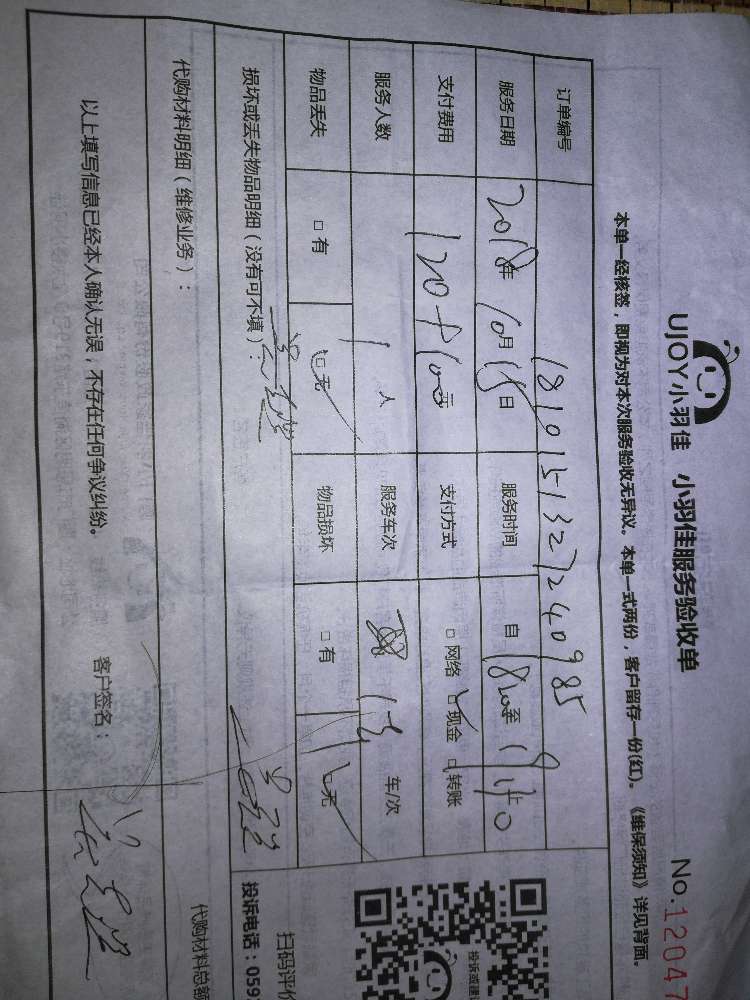 UJOY小羽佳 小羽佳服务验收单 No.12047
本单一经核签，即视为对本次服务验收无异议。本单一式两份，客户留存一份(红)。《维保须知》详见背面。
订单编号 1810151327240985
服务日期 2018年10月15日 服务时间 自 至
支付费用 120 元 支付方式 □网络 □现金 □转账
服务人数 1 人 服务车次 车/次
物品丢失 □有 □无 物品损坏 □有 □无
损坏或丢失物品明细（没有可不填）：
扫码评价
投诉电话：059
代购材料明细（维修业务）： 代购材料总额
以上填写信息已经本人确认无误，不存在任何争议纠纷。 客户签名：